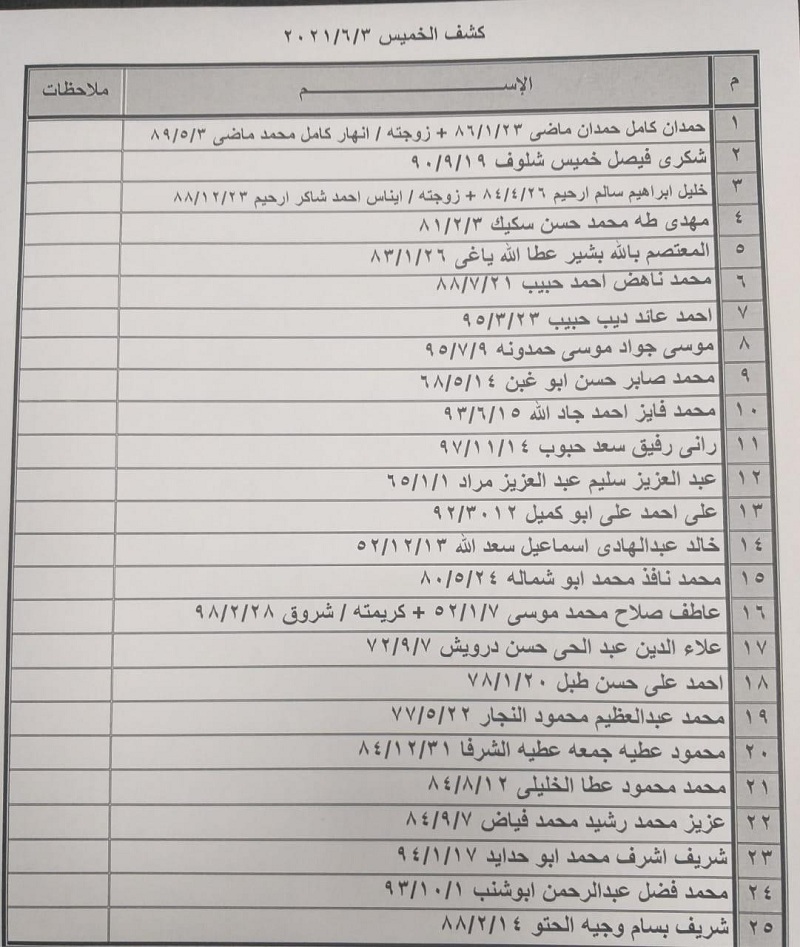 كشف الخميس ٢٠٢١/٦/٣
م الإســــــــم ملاحظات
١ حمدان كامل حمدان ماضى ٨٦/١/٢٣ + زوجته / انهار كامل محمد ماضى ٨٩/٥/٣
٢ شكرى فيصل خميس شلوف ٩٠/٩/١٩
٣ خليل ابراهيم سالم ارحيم ٨٤/٤/٢٦ + زوجته / ايناس احمد شاكر ارحيم ٨٨/١٢/٢٣
٤ مهدى طه محمد حسن سكيك ٨١/٢/٣
٥ المعتصم بالله بشير عطا الله ياغى ٨٣/١/٢٦
٦ محمد ناهض احمد حبيب ٨٨/٧/٢١
٧ احمد عائد ديب حبيب ٩٥/٣/٢٣
٨ موسى جواد موسى حمدونه ٩٥/٧/٩
٩ محمد صابر حسن ابو غبن ٦٨/٥/١٤
١٠ محمد فايز احمد جاد الله ٩٣/٦/١٥
١١ رانى رفيق سعد حبوب ٩٧/١١/١٤
١٢ عبد العزيز سليم عبد العزيز مراد ٦٥/١/١
١٣ على احمد على ابو كميل ٩٢/٣٠١٢
١٤ خالد عبدالهادى اسماعيل سعد الله ٥٢/١٢/١٣
١٥ محمد نافذ محمد ابو شماله ٨٠/٥/٢٤
١٦ عاطف صلاح محمد موسى ٥٢/١/٧ + كريمته / شروق ٩٨/٢/٢٨
١٧ علاء الدين عبد الحى حسن درويش ٧٢/٩/٧
١٨ احمد على حسن طبل ٧٨/١/٢٠
١٩ محمد عبدالعظيم محمود النجار ٧٧/٥/٢٢
٢٠ محمود عطيه جمعه عطيه الشرفا ٨٤/١٢/٣١
٢١ محمد محمود عطا الخليلى ٨٤/٨/١٢
٢٢ عزيز محمد رشيد محمد فياض ٨٤/٩/٧
٢٣ شريف اشرف محمد ابو حدايد ٩٤/١/١٧
٢٤ محمد فضل عبدالرحمن ابوشنب ٩٣/١٠/١
٢٥ شريف بسام وجيه الحتو ٨٨/٢/١٤